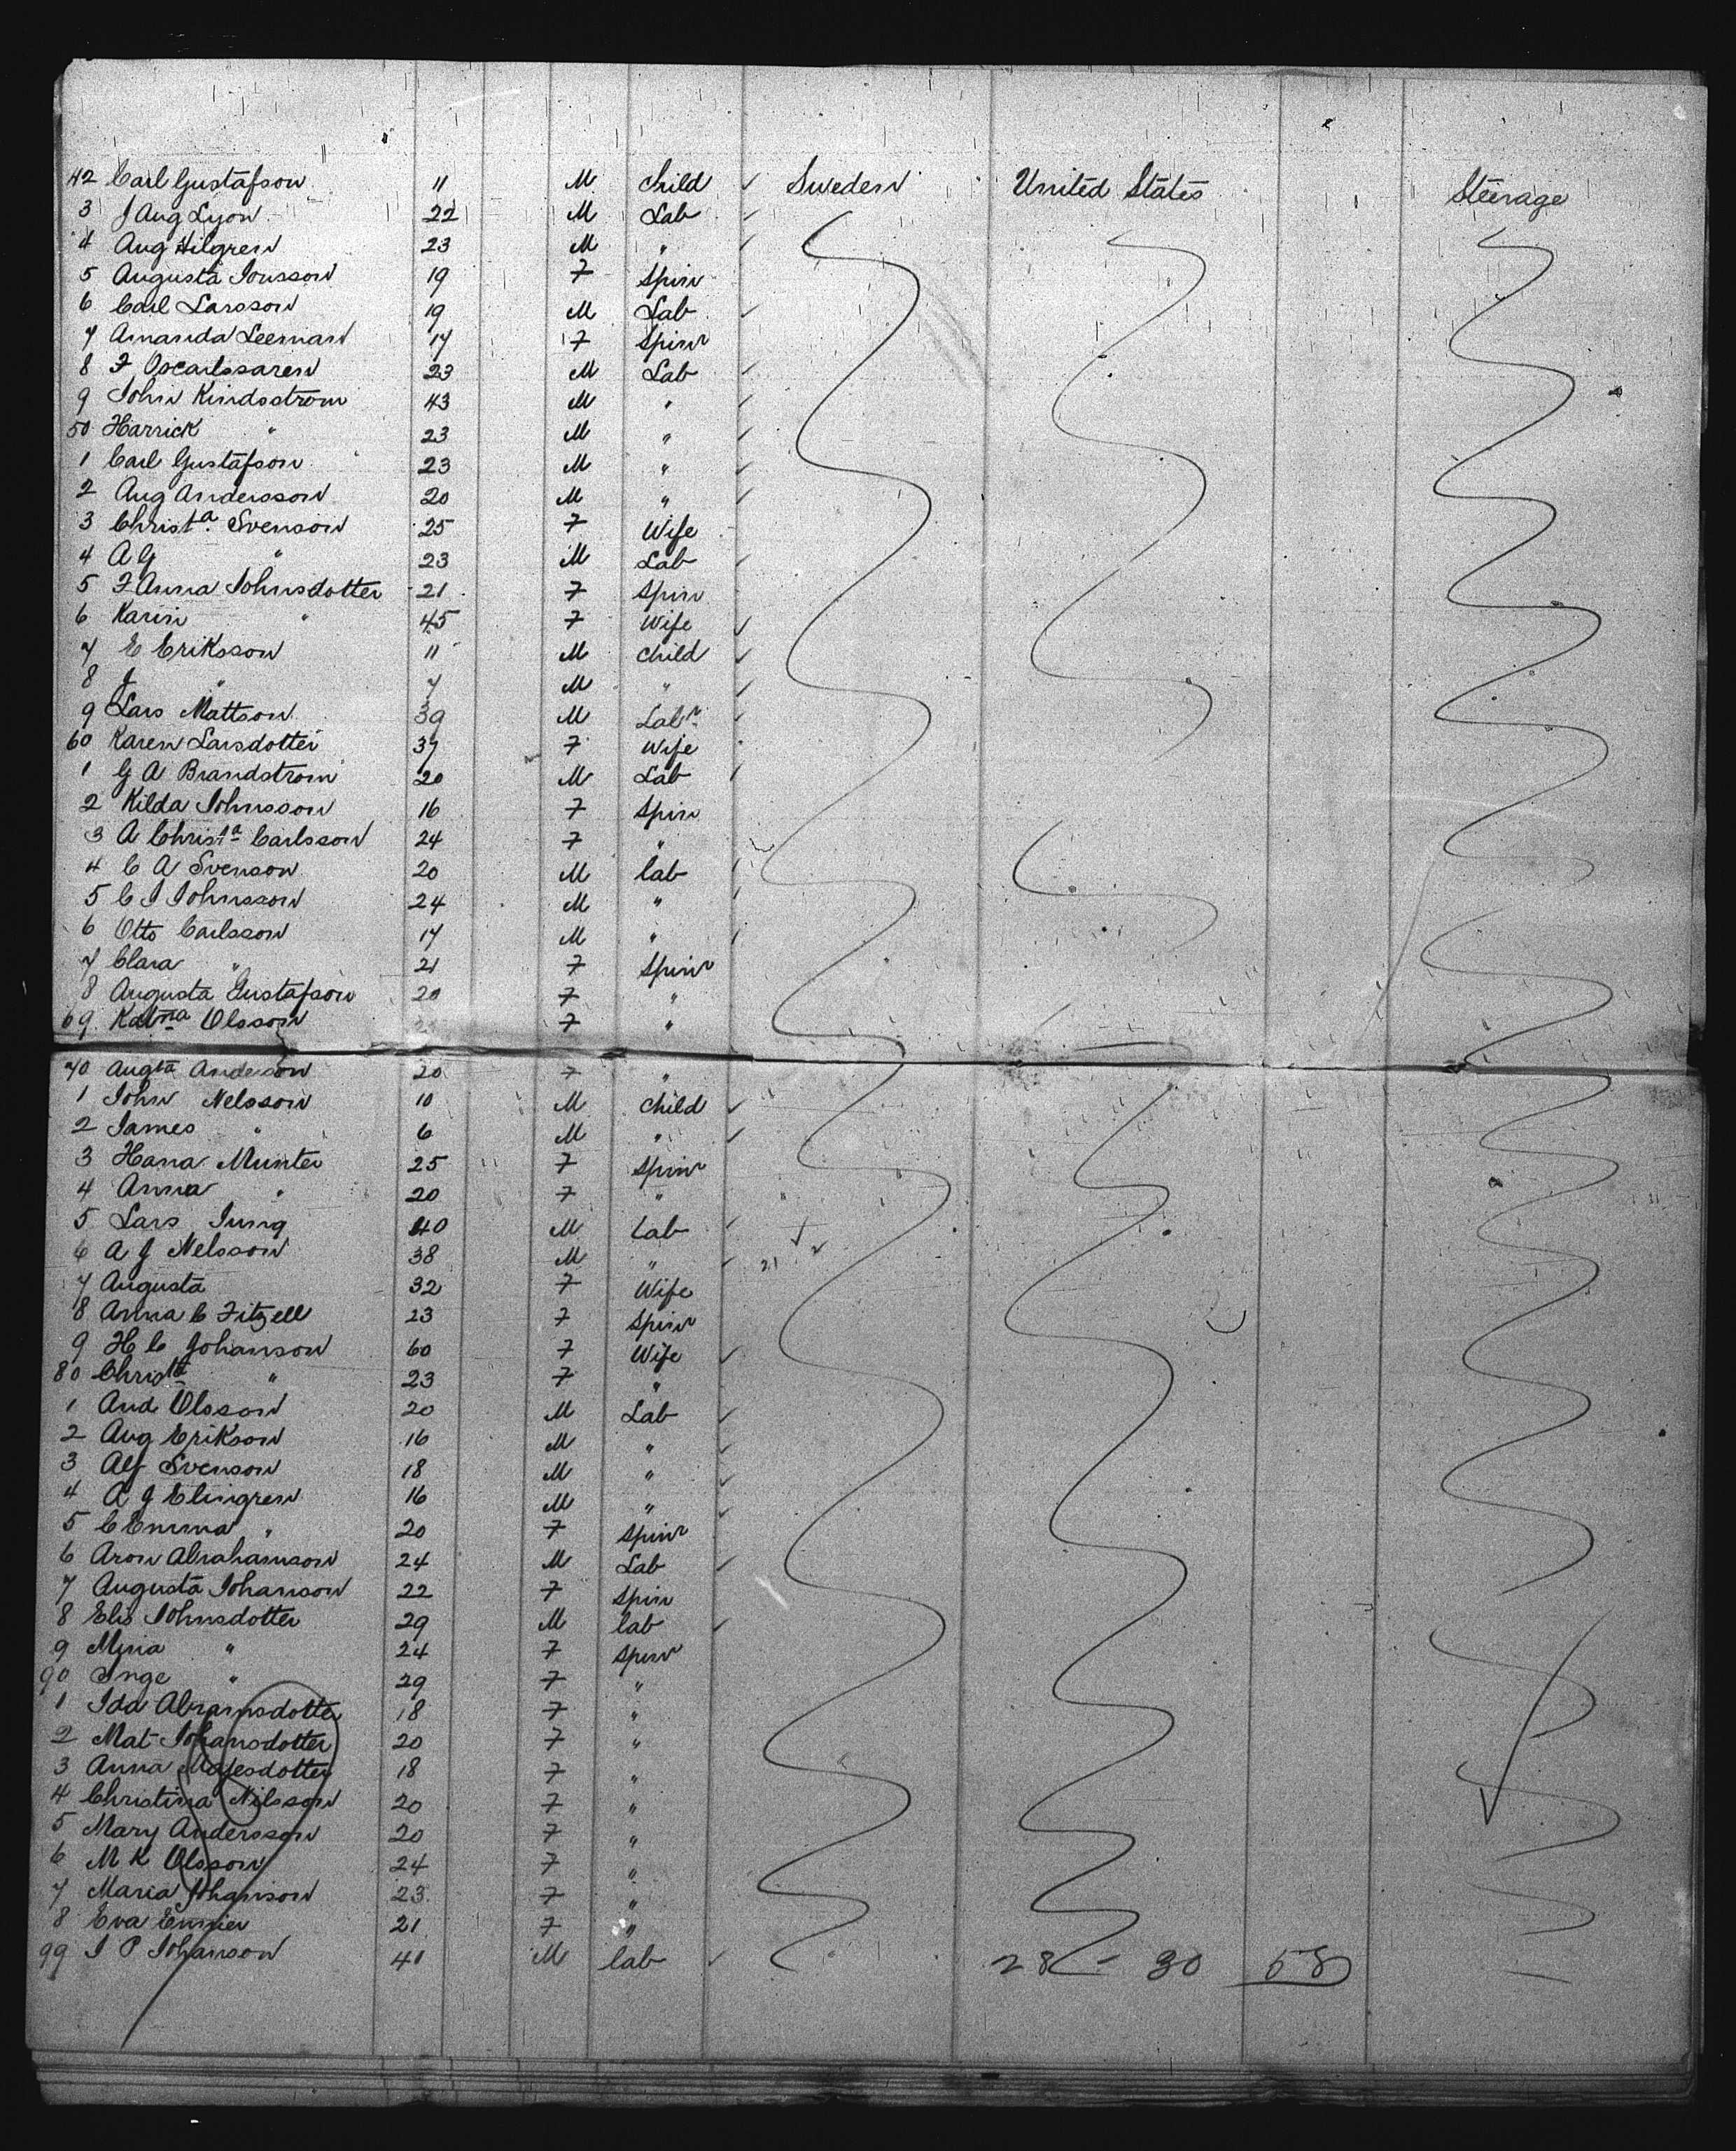 42 Carl Gustafson 11 M Child Sweden United States Steerage
3 J Aug Lyon 22 M Lab
4 Aug Hilgren 23 M "
5 Augusta Jonsson 19 F Spin
6 Carl Larsson 19 M Lab
7 Amanda Leeman 17 F Spinr
8 F Oscarlssaren 23 M Lab
9 John Kindstrom 43 M "
50 Harrick " 23 M "
1 Carl Gustafson 23 M "
2 Aug Andersson 20 M "
3 Christa Svenson 25 F Wife
4 A G " 23 M Lab
5 F Anna Johnsdotter 21 F Spin
6 Karin " 45 F Wife
7 E Eriksson 11 M Child
8 J " 7 M "
9 Lars Mattson 39 M Labr
60 Karen Larsdotter 37 F Wife
1 G A Brandstrom 20 M Lab
2 Kilda Johnsson 16 F Spin
3 A Christa Carlsson 24 F "
4 C A Svenson 20 M lab
5 C J Johnsson 24 M "
6 Otto Carlsson 17 M "
7 Clara " 21 F Spinr
8 Augusta Gustafson 20 F "
69 Olsson F "
70 Augta Anderson 20 F "
1 John Nelsson 10 M Child
2 James " 6 M "
3 Hana Munter 25 F Spinr
4 Anna " 20 F "
5 Lars Jung 40 M Lab
6 A J Nelsson 38 M " 21
7 Augusta 32 F Wife
8 Anna C Fitzell 23 F Spinr
9 H C Johanson 60 F Wife
80 Christa " 23 F "
1 And Olsson 20 M Lab
2 Aug Erikson 16 M "
3 Alf Svenson 18 M "
4 A J Elingren 16 M "
5 C Emma " 20 F Spinr
6 Aron Abrahamson 24 M Lab
7 Augusta Johanson 22 F Spin
8 Elis Johnsdotter 29 M lab
9 Mina " 24 F Spinr
90 Inge " 29 F "
1 Ida Abramsdotter 18 F "
2 Mat Johansdotter 20 F "
3 Anna 18 F "
4 Christina Nilsson 20 F "
5 Mary Andersson 20 F "
6 M K Olsson 24 F "
7 Maria Johanson 23 F "
8 Eva 21 F "
99 J P Johanson 41 M lab 28 - 30 58